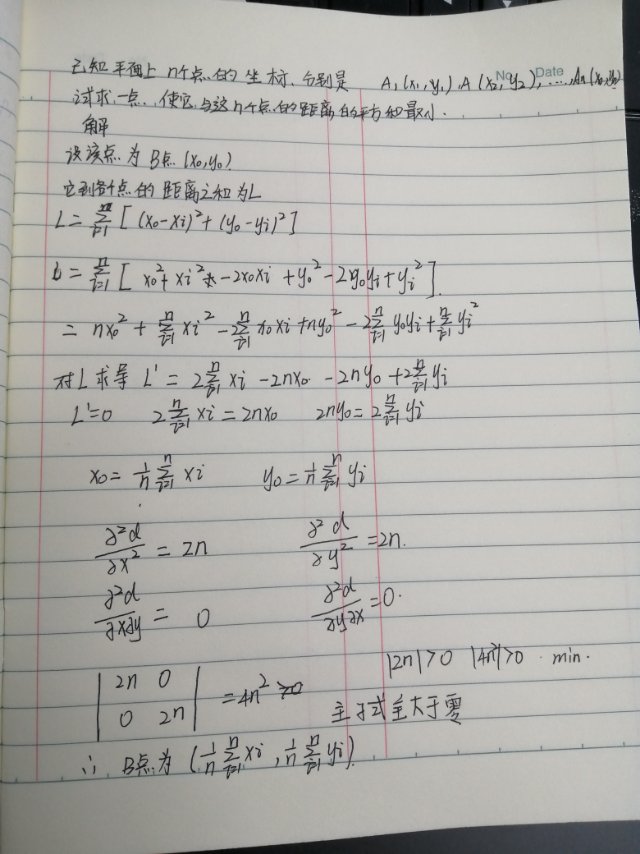 No Date
已知平面上n个点的坐标,分别是 A₁(x₁,y₁).A(x₂,y₂),…,An(xn,yn)
试求一点,使它与这n个点的距离的平方和最小.
解
设该点为B点(x₀,y₀)
它到各个点的距离之和为L
L=∑ⁿᵢ₌₁[(x₀-xi)²+(y₀-yi)²]
L=∑ⁿᵢ₌₁[x₀²+xi²-2x₀xi+y₀²-2y₀yi+yi²]
=nx₀²+∑ⁿᵢ₌₁xi²-2∑ⁿᵢ₌₁x₀xi+ny₀²-2∑ⁿᵢ₌₁y₀yi+∑ⁿᵢ₌₁yi²
对L求导 L'=2∑ⁿᵢ₌₁xi-2nx₀-2ny₀+2∑ⁿᵢ₌₁yi
L'=0 2∑ⁿᵢ₌₁xi=2nx₀ 2ny₀=2∑ⁿᵢ₌₁yi
x₀=1/n∑ⁿᵢ₌₁xi y₀=1/n∑ⁿᵢ₌₁yi
∂²d/∂x²=2n ∂²d/∂y²=2n.
∂²d/∂x∂y=0 ∂²d/∂y∂x=0.
|2n|>0 |4n²|>0 . min.
|2n 0|
|0 2n| =4n²
主子式全大于零
∴ B点为(1/n∑ⁿᵢ₌₁xi,1/n∑ⁿᵢ₌₁yi)